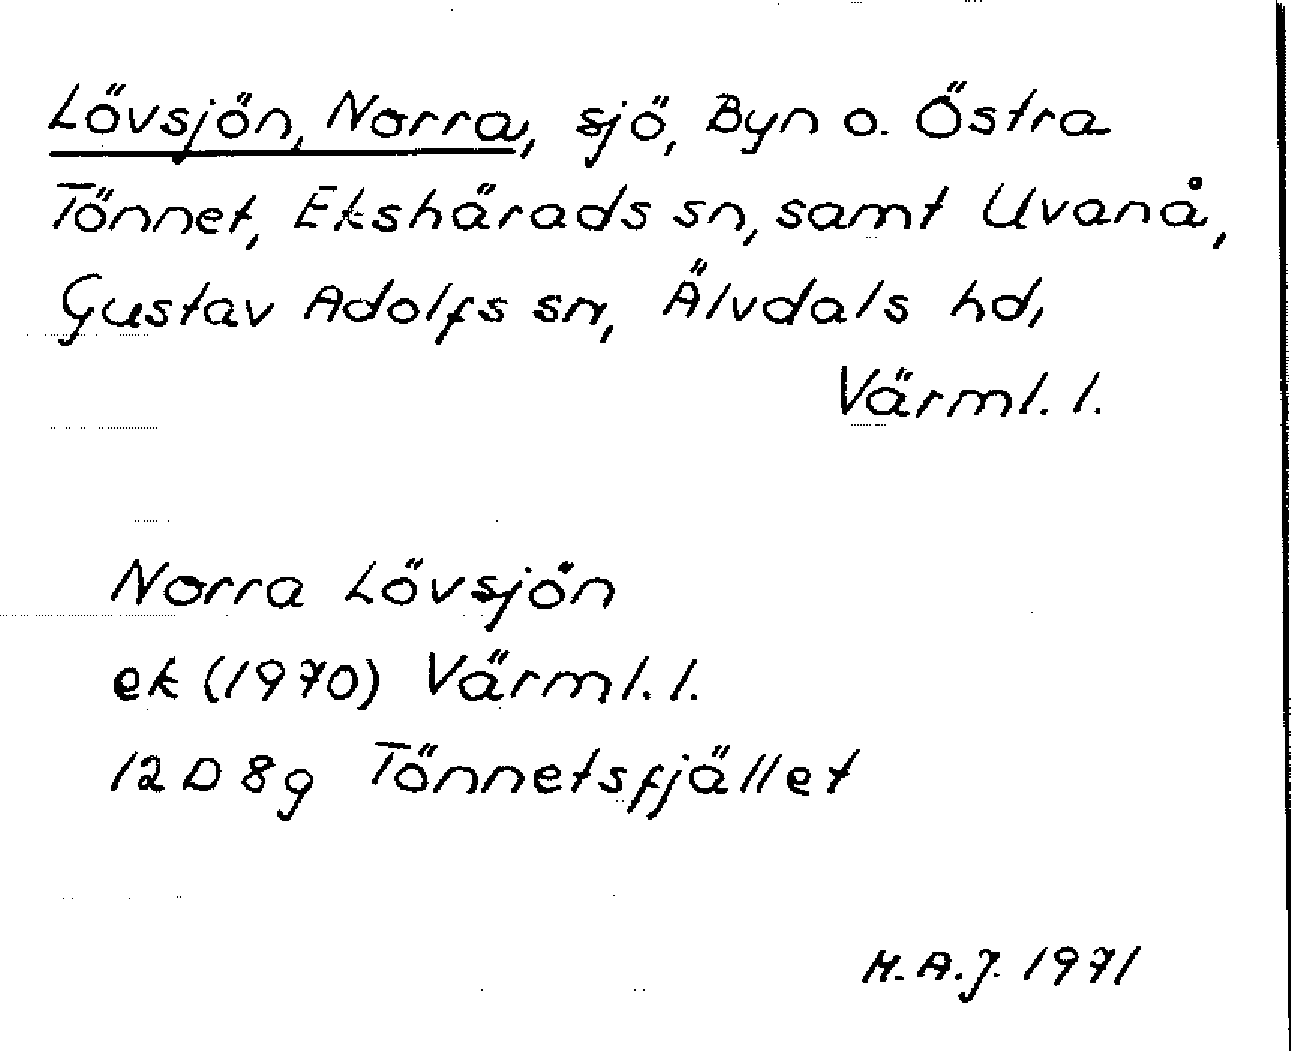 Lövsjön, Norra, sjö, Byn o. Östra
Tönnet, Ekshärads sn, samt Uvanå,
Gustav Adolfs sn, Älvdals hd,
Värml. l.
Norra Lövsjön
ek (1970) Värml. l.
12 D 8g Tönnetsfjället
M.A.J. 1971